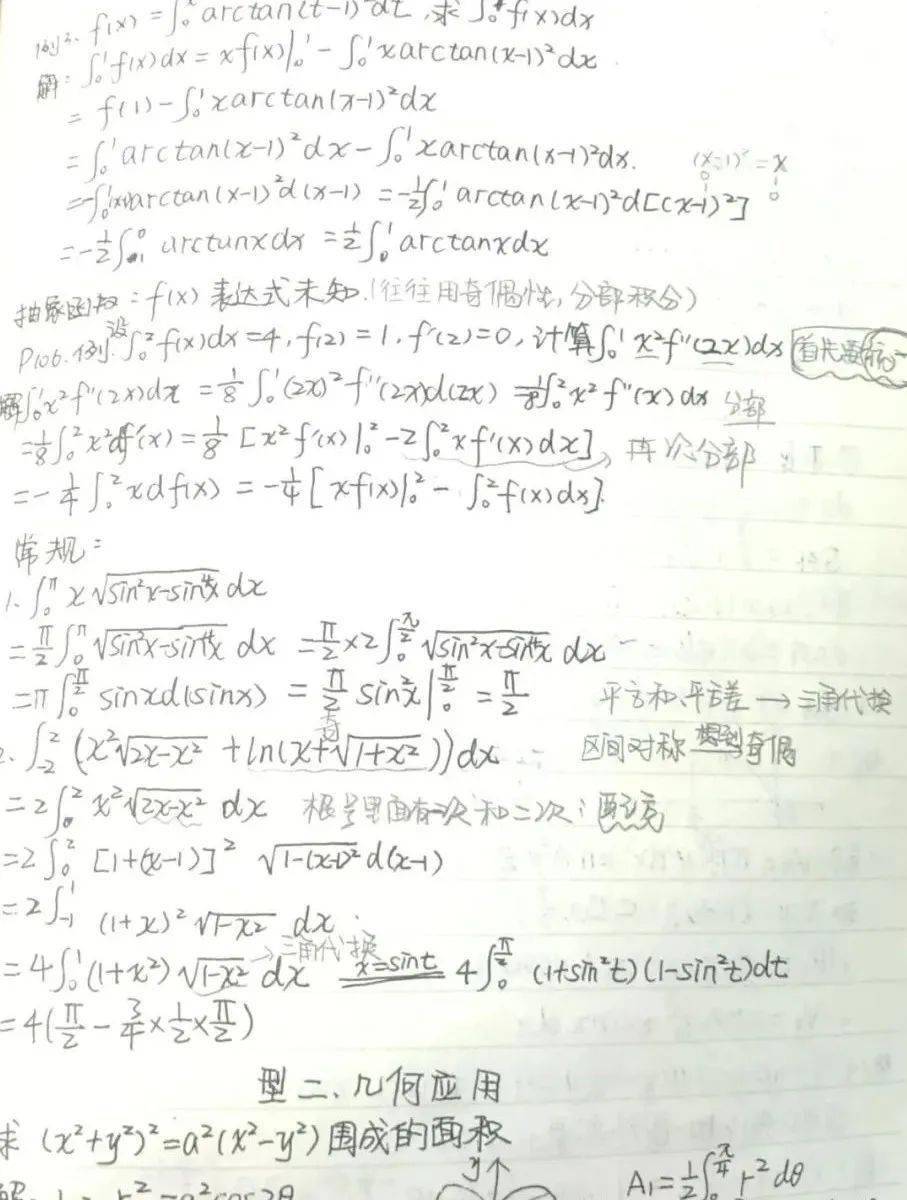 例2. f(x) = ∫₀ˣ arctan(t-1)²dt, 求 ∫₀¹ f(x)dx
解: ∫₀¹ f(x)dx = xf(x)|₀¹ - ∫₀¹ x arctan(x-1)²dx
= f(1) - ∫₀¹ x arctan(x-1)²dx
= ∫₀¹ arctan(x-1)²dx - ∫₀¹ x arctan(x-1)²dx. (x-1)² = x
= -∫₀¹ (x-1) arctan(x-1)²d(x-1) = -½∫₀¹ arctan(x-1)²d[(x-1)²]
= -½∫₁⁰ arctanxdx = ½∫₀¹ arctanxdx
抽象函数: f(x) 表达式未知.(往往用奇偶性, 分部积分)
P106. 例. 设 ∫₀² f(x)dx = 4, f(2) = 1, f'(2) = 0, 计算 ∫₀¹ x² f''(2x)dx 首先要统一
解 ∫₀¹ x² f''(2x)dx = ⅛ ∫₀¹ (2x)² f''(2x)d(2x) = ⅛∫₀² x² f''(x)dx 分部
= ⅛ ∫₀² x²df'(x) = ⅛ [x² f'(x)|₀² - 2∫₀² x f'(x)dx] → 再次分部
= -¼ ∫₀² xdf(x) = -¼ [xf(x)|₀² - ∫₀² f(x)dx].
常规:
1. ∫₀^π x √(sin²x-sin⁴x) dx
= π/2 ∫₀^π √(sin²x-sin⁴x) dx = π/2 × 2∫₀^{π/2} √(sin²x-sin⁴x) dx
= π ∫₀^{π/2} sinxd(sinx) = π/2 sin²x|₀^{π/2} = π/2 平方和、平方差 → 三角代换
2. ∫₋₂² (x²√(2x-x²) + ln(x+√(1+x²)))dx 奇 区间对称 想到 奇偶
= 2∫₀² x²√(2x-x²) dx 根号里面有一次和二次: 配方
= 2 ∫₀² [1+(x-1)]² √(1-(x-1)²) d(x-1)
= 2 ∫₋₁¹ (1+x)² √(1-x²) dx.
= 4∫₀¹ (1+x²) √(1-x²) dx → 三角代换 x=sint 4∫₀^{π/2} (1+sin²t)(1-sin²t)dt
= 4(π/2 - ¾ × ½ × π/2)
型二、几何应用
求 (x²+y²)² = a²(x²-y²) 围成的面积
y↑ A₁ = ½∫₀^{π/4} r² dθ